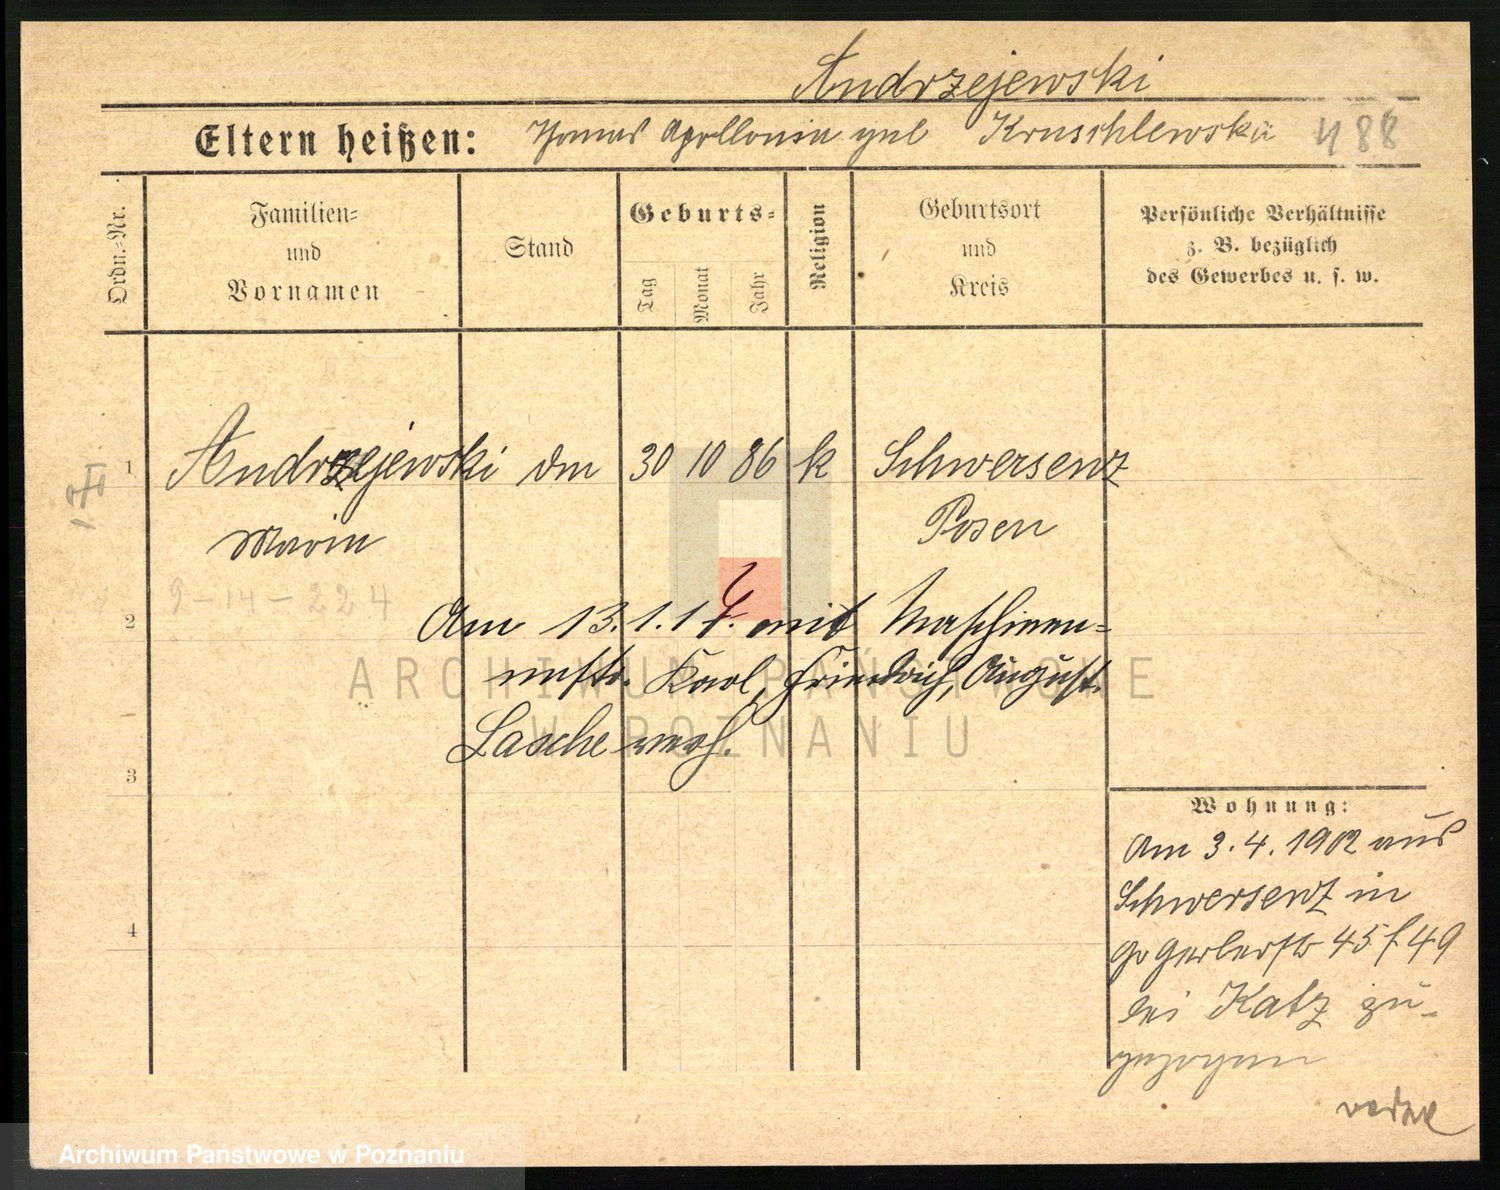 Andrzejewski
Eltern heißen: Thomas Apollonia geb Kruschlewska 488
Ordn.-Nr.
Familien-
und
Vornamen
Stand
Geburts-
Tag
Monat
Jahr
Religion
Geburtsort
und
Kreis
Persönliche Verhältnisse
z. B. bezüglich
des Gewerbes u. s. w.
1 Andrzejewski 30 10 86 k Schwersenz
Maria Posen
9-14-224
2 Am 13.1.17. mit Maschinen-
mstr. Karl, Friedrich, August
Lasche verh.
3
Wohnung:
Am 3.4.1902 aus
Schwersenz in
Gr Gerberstr 45/49
bei Katz zu-
gezogen
4
ARCHIWUM PAŃSTWOWE
W POZNANIU
Archiwum Państwowe w Poznaniu